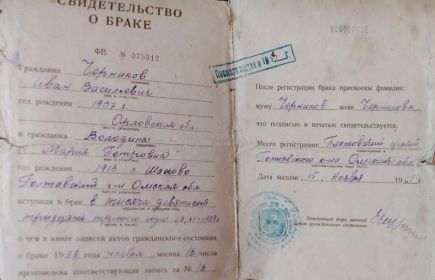 СВИДЕТЕЛЬСТВО
О БРАКЕ
ФЕ № 075312
Гражданин Черников
Иван Васильевич
год рождения 1907 г.
Орловская обл
и гражданка Володина
Мария Петровна
год рождения 1913 г
Полтавский р-н Омская обл
вступили в брак в тысяча девятсот
тридцать третьего года
о чем в книге записей актов гражданского состояния
о браке 1933 года ноября 10 числа
произведена соответствующая запись за №
После регистрации брака присвоены фамилии:
мужу Черников жене Черникова
что подписью и печатью свидетельствуется.
Место регистрации:
Полтавского р-на Омская обл
Дата выдачи 15 Ноября
Заведующий бюро записей
актов гражданского состояния